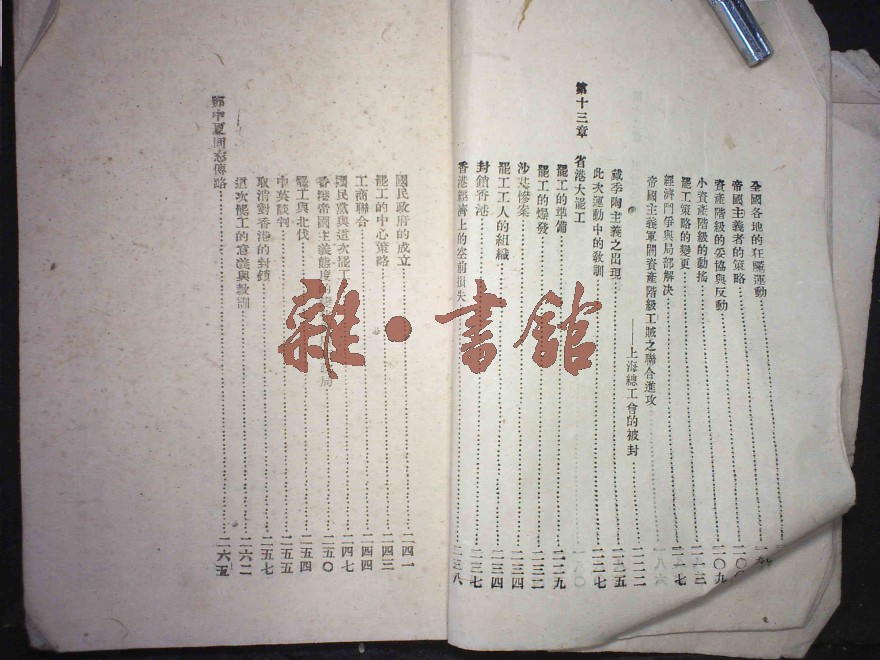 全國各地的狂飈運動
帝國主義者的策略
資產階級的妥協與反動……二〇九
小資產階級的動搖……二一三
罷工策略的變更……二一七
經濟鬥爭與局部解決
帝國主義軍閥資產階級工賊之聯合進攻
——上海總工會的被封……二二二
戴季陶主義之出現……二二五
此次運動中的敎訓……二二七
第十三章 省港大罷工
罷工的準備……二二九
罷工的爆發……二三二
沙基慘案……二三四
罷工工人的組織……二三四
封鎖香港……二三七
香港經濟上的空前損失……二三八
國民政府的成立……二四一
罷工的中心策略……二四三
工商聯合……二四四
國民黨與這次罷工……二四七
香港帝國主義態度的 局……二五〇
罷工與北伐……二五四
中英談判……二五五
取消對香港的封鎖……二五七
這次罷工的意義與敎訓……二六二
鄧中夏同志傳略……二六五
雜·書館